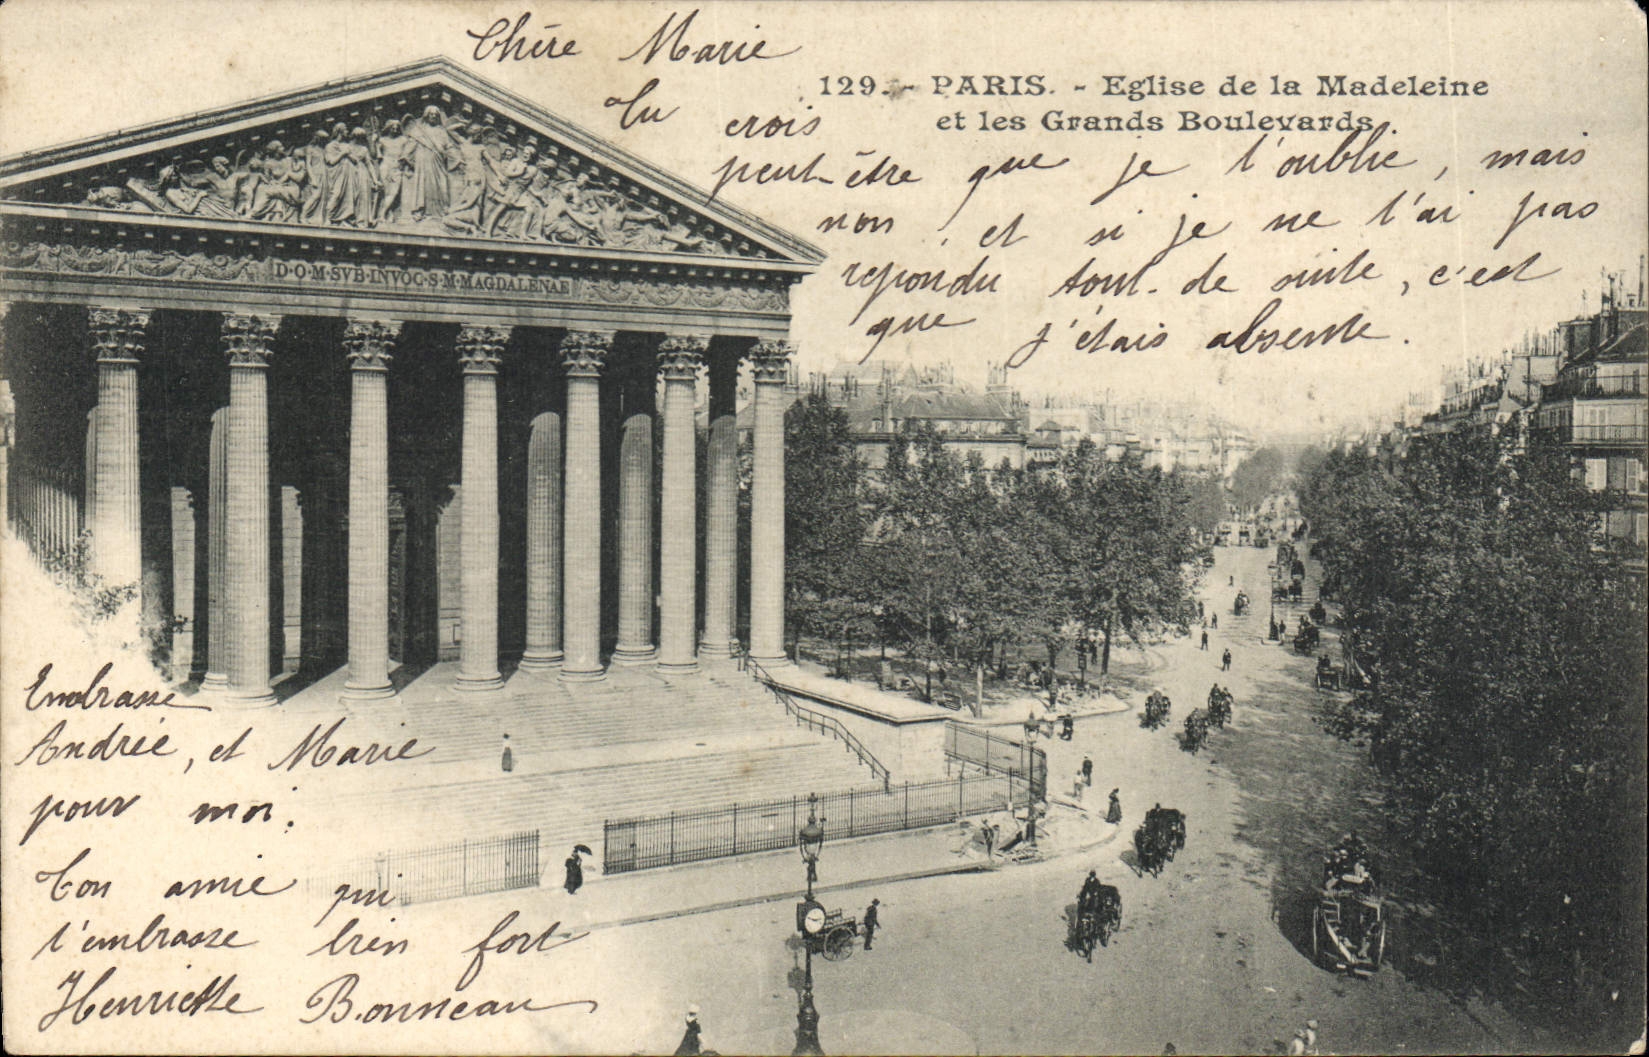 Chère Marie
129. - PARIS. - Eglise de la Madeleine
et les Grands Boulevards
Tu crois
peut-être que je t'oublie, mais
non, et si je ne t'ai pas
repondu tout de suite, c'est
que j'étais absente.
D·O·M·SVB·INVOC·S·M·MAGDALENAE
Embrasse
Andrée, et Marie
pour moi.
Ton amie qui
t'embrasse bien fort
Henriette Bonneau